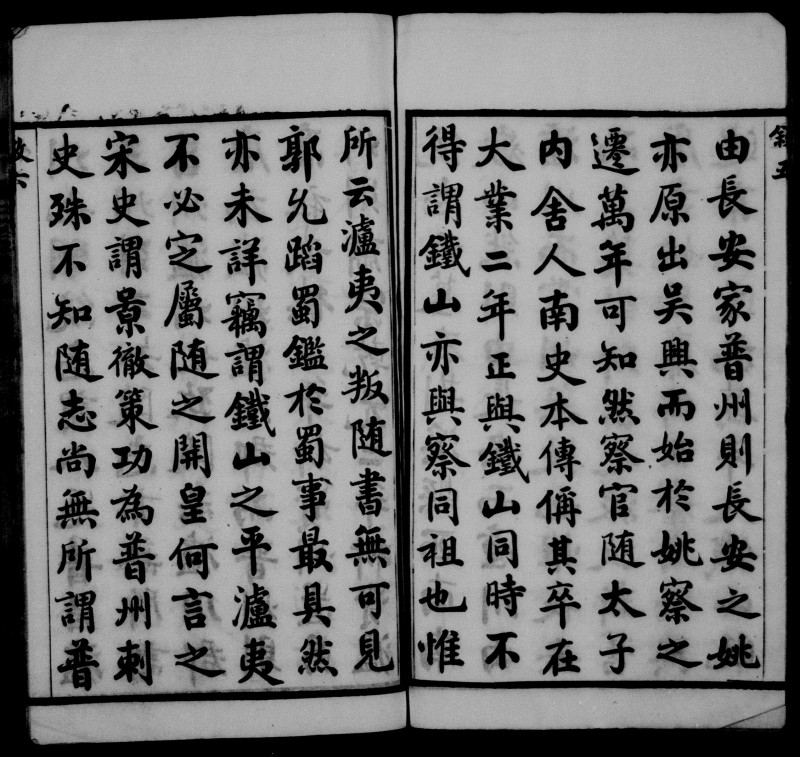 敘五
由長安家普州則長安之姚
亦原出吴興而始於姚察之
遷萬年可知然察官随太子
内舍人南史本傳偁其卒在
大業二年正與鐵山同時不
得謂鐵山亦與察同祖也惟
所云瀘夷之叛随書無可見
郭允蹈蜀鑑於蜀事最具然
亦未詳竊謂鐵山之平瀘夷
不必定屬随之開皇何言之
宋史謂景徹策功為普州刺
史殊不知随志尚無所謂普
敘六